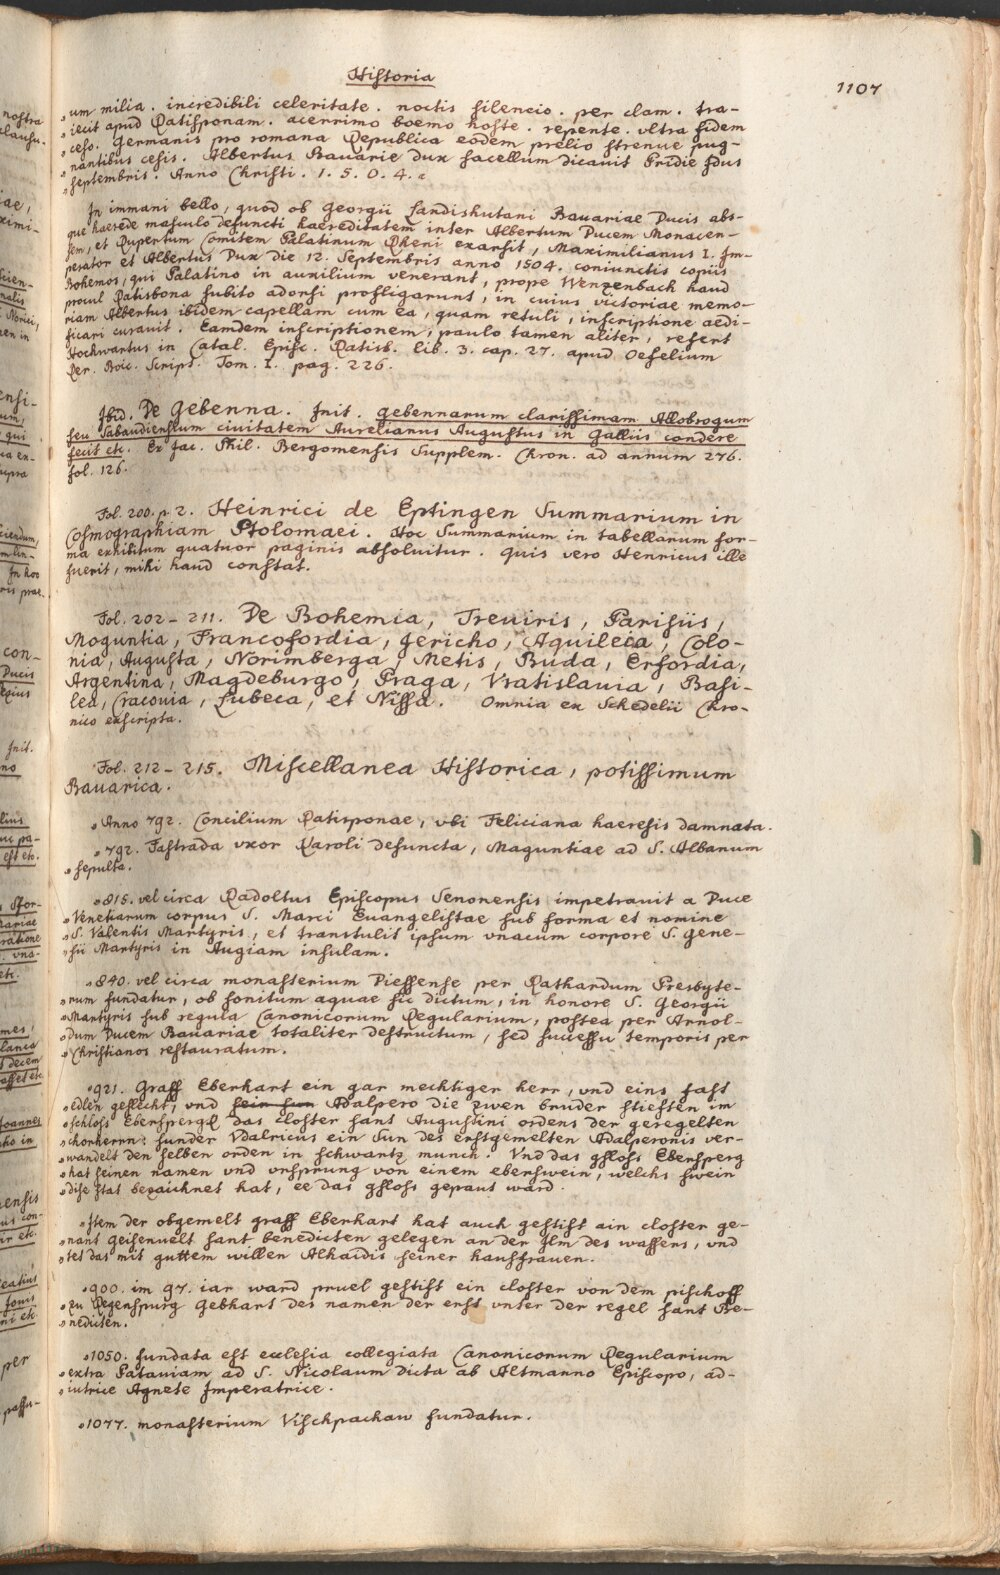 Historia
1107
„um milia . incredibili celeritate . noctis silencio . per clam . tra-
„iecit apud Ratisponam . acerrimo boemo hoste . repente . vltra fidem
„ceso . Germanis pro romana Republica eodem prelio strenue pug-
„nantibus cesis . Albertus Bauarie Dux sacellum dicauit Pridie Idus
„septembris . Anno Christi . 1. 5. 0. 4. „
In immani bello, quod ob Georgii Landishutani Bauariae Ducis abs-
que haerede masculo defuncti haereditatem inter Albertum Ducem Monacen-
sem, et Rupertum Comitem Palatinum Rheni exarsit, Maximilianus I. Im-
perator et Albertus Dux die 12. Septembris anno 1504. coniunctis copiis
Bohemos, qui Palatino in auxilium venerant, prope Wenzenbach haud
procul Ratisbona subito adorsi profligarunt, in cuius victoriae memo-
riam Albertus ibidem capellam cum ea, quam retuli, inscriptione aedi-
ficari curauit. Eamdem inscriptionem, paulo tamen aliter, refert
Hochwartus in Catal. Episc. Ratisb. lib. 3. cap. 27. apud Oefelium
Rer. Boic. Script. Tom. I. pag. 226.
Ibid. De Gebenna. Init. gebennarum clarissimam Allobrogum
seu Sabaudiensium ciuitatem Aurelianus Augustus in Galliis condere
fecit etc. Ex Jac. Phil. Bergomensis Supplem. Chron. ad annum 276.
fol. 126.
Fol. 200. p. 2. Heinrici de Eptingen Summarium in
Cosmographiam Ptolomaei. Hoc Summarium in tabellarum for-
ma exhibitum quatuor paginis absoluitur. Quis vero Henricus ille
fuerit, mihi haud constat.
Fol. 202 – 211. De Bohemia, Treuiris, Parisiis,
Moguntia, Francofordia, Jericho, Aquileia, Colo-
nia, Augusta, Norimberga, Metis, Buda, Erfordia,
Argentina, Magdeburgo, Praga, Vratislauia, Basi-
lea, Cracouia, Lubeca, et Nissa. Omnia ex Schedelii Chro-
nico exscripta.
Fol. 212 – 215. Miscellanea Historica, potissimum
Bauarica.
„Anno 792. Concilium Ratisponae, vbi Feliciana haeresis damnata.
„792. Fastrada vxor Karoli defuncta, Maguntiae ad S. Albanum
„sepulta.
„815. vel circa Radoltus Episcopus Senonensis impetrauit a Duce
„Venetiarum corpus S. Marci Euangelistae sub forma et nomine
„S. Valentis Martyris, et transtulit ipsum vnacum corpore S. Gene-
„sii Martyris in Augiam insulam.
„840. vel circa monasterium Diessense per Rathardum Presbyte-
„rum fundatur, ob sonitum aquae sic dictum, in honore S. Georgii
„Martyris sub regula Canonicorum Regularium, postea per Arnol-
„dum Ducem Bauariae totaliter destructum, sed successu temporis per
„Christianos restauratum.
„921. Graff Eberhart ein gar mechtiger herr, vnd eins fast
„edlen geslecht, vnd sein sun Adalpero die zwen bruder stifften im
„schloss Ebersperg das closter sant Augustini ordens der geregelten
„chorherrn: sunder Vdalricus ein Sun des erstgemelten Adalperonis ver-
„wandelt den selben orden in schwartz munch. Vnd das gsloss Ebersperg
„hat seinen namen vnd vrsprung von einem eberswein, welchs swein
„dise stat bezaichnet hat, ee das gsloss gepaut ward.
„Item der obgemelt graff Eberhart hat auch gestift ain closter ge-
„nant geisenuelt sant benedicten gelegen an der Ilm des wassers, vnd
„tet das mit guttem willen Alhaidis seiner hausfrauen.
„900. im 97. iar ward pruel gestift ein closter von dem pischoff
„zu Regenspurg Gebhart des namen der erst vnter der regel sant Be-
„nedicten.
„1050. fundata est ecclesia collegiata Canonicorum Regularium
„extra Patauiam ad S. Nicolaum dicta ab Altmanno Episcopo, ad-
„iutrice Agnete Imperatrice.
„1077. monasterium Vischpachaw fundatur.